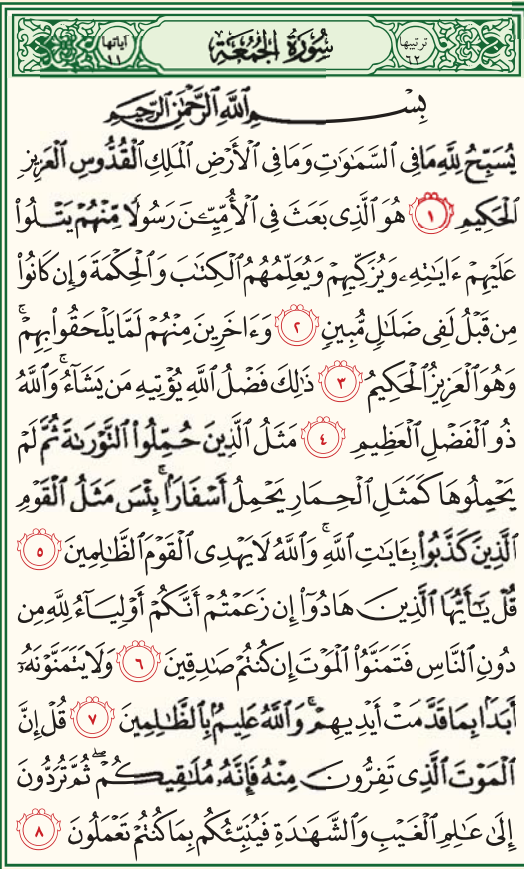 ترتيبها ٦٢ سُورَةُ الجُمُعَةِ آياتها ١١
بِسْمِ اللَّهِ الرَّحْمَٰنِ الرَّحِيمِ
يُسَبِّحُ لِلَّهِ مَا فِي السَّمَٰوَٰتِ وَمَا فِي الْأَرْضِ الْمَلِكِ الْقُدُّوسِ الْعَزِيزِ
الْحَكِيمِ ١ هُوَ الَّذِي بَعَثَ فِي الْأُمِّيِّـۧنَ رَسُولًا مِّنْهُمْ يَتْلُوا۟
عَلَيْهِمْ ءَايَٰتِهِۦ وَيُزَكِّيهِمْ وَيُعَلِّمُهُمُ الْكِتَٰبَ وَالْحِكْمَةَ وَإِن كَانُوا۟
مِن قَبْلُ لَفِي ضَلَٰلٍ مُّبِينٍ ٢ وَءَاخَرِينَ مِنْهُمْ لَمَّا يَلْحَقُوا۟ بِهِمْ ۚ
وَهُوَ الْعَزِيزُ الْحَكِيمُ ٣ ذَٰلِكَ فَضْلُ اللَّهِ يُؤْتِيهِ مَن يَشَآءُ ۚ وَاللَّهُ
ذُو الْفَضْلِ الْعَظِيمِ ٤ مَثَلُ الَّذِينَ حُمِّلُوا۟ التَّوْرَىٰةَ ثُمَّ لَمْ
يَحْمِلُوهَا كَمَثَلِ الْحِمَارِ يَحْمِلُ أَسْفَارًۢا ۚ بِئْسَ مَثَلُ الْقَوْمِ
الَّذِينَ كَذَّبُوا۟ بِـَٔايَٰتِ اللَّهِ ۚ وَاللَّهُ لَا يَهْدِي الْقَوْمَ الظَّٰلِمِينَ ٥
قُلْ يَٰٓأَيُّهَا الَّذِينَ هَادُوٓا۟ إِن زَعَمْتُمْ أَنَّكُمْ أَوْلِيَآءُ لِلَّهِ مِن
دُونِ النَّاسِ فَتَمَنَّوُا۟ الْمَوْتَ إِن كُنتُمْ صَٰدِقِينَ ٦ وَلَا يَتَمَنَّوْنَهُۥٓ
أَبَدًۢا بِمَا قَدَّمَتْ أَيْدِيهِمْ ۚ وَاللَّهُ عَلِيمٌۢ بِالظَّٰلِمِينَ ٧ قُلْ إِنَّ
الْمَوْتَ الَّذِي تَفِرُّونَ مِنْهُ فَإِنَّهُۥ مُلَٰقِيكُمْ ۖ ثُمَّ تُرَدُّونَ
إِلَىٰ عَٰلِمِ الْغَيْبِ وَالشَّهَٰدَةِ فَيُنَبِّئُكُم بِمَا كُنتُمْ تَعْمَلُونَ ٨